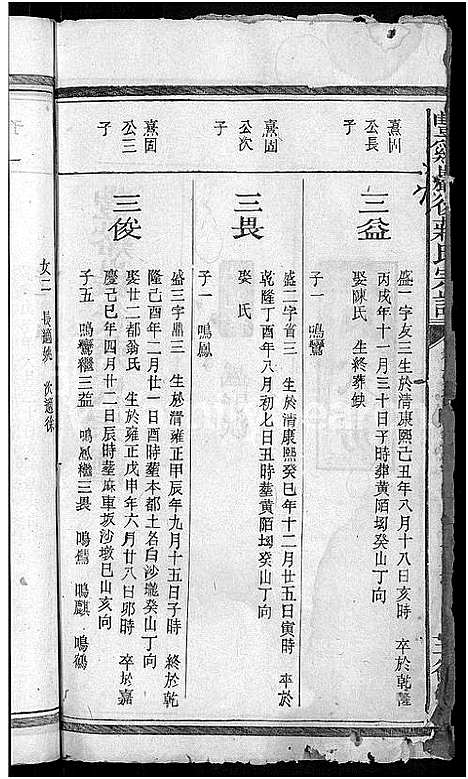 熹固
公長
子
三益
盛一字友三生於清康熙己丑年八月十八日亥時 卒於乾隆
丙戌年十一月三十日子時葬黄陌坳癸山丁向
娶陳氏 生終葬缺
子一 鳴鸞
熹固
公次
子
三畏
盛二字省三 生於清康熙癸巳年十二月廿五日寅時 卒於
乾隆丁酉年八月初七日丑時𦵏黄陌坳癸山丁向
娶 氏
子一 鳴鳳
熹固
公三
子
三俊
盛三字鼎三 生於清雍正甲辰年九月十五日子時 終於乾
隆己酉年二月廿一日酉時𦵏本都土名白沙壠癸山丁向
娶廿二都翁氏 生於雍正戊申年六月廿八日卯時 卒於嘉
慶己巳年四月廿二日辰時𦵏麻車坂沙墩巳山亥向
子五 鳴鸞繼三益 鳴鳳繼三畏 鳴儒 鳴麒 鳴鶴
女二 長適姚 次適徐